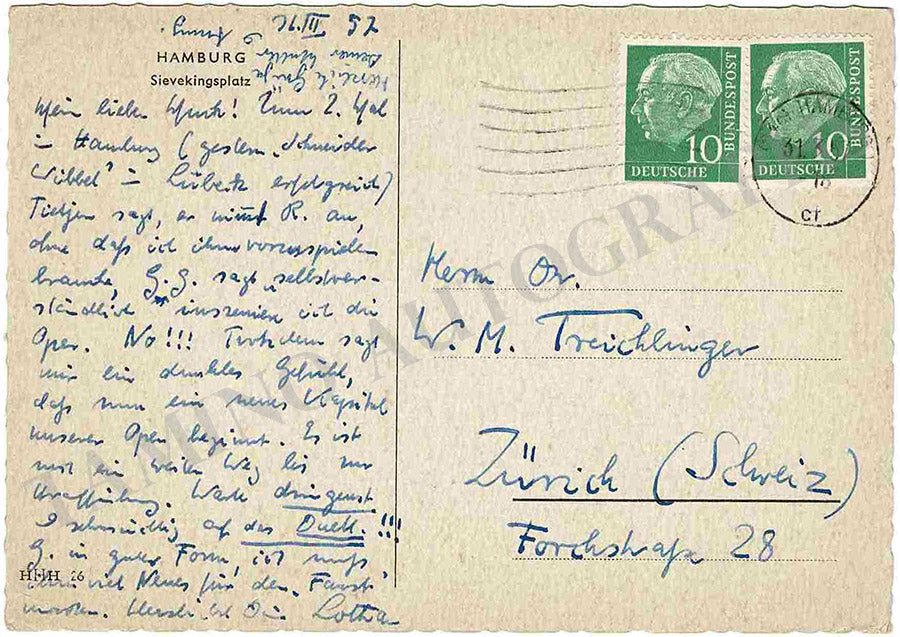 HAMBURG
Sievekingsplatz
Herzliche Grüße
Deines
26 III 57
Mein lieber Wurk! Zum 2. Mal
in Hamburg (gestern „Schneider
Wibbel" in Lübeck erfolgreich)
Tietjen sagt, er nimmt R. an,
ohne daß ich ihm vorzuspielen
brauche, G.G. sagt „selbstver-
ständlich" inszeniere ich die
Oper. No!!! Trotzdem sagt
mir ein dunkles Gefühl,
daß nun ein neues Kapitel
unserer Oper beginnt. Es ist
noch ein weiter Weg bis zur
Uraufführung. Warte dringenst
sehnsüchtig auf das Duett.!!!
G. in guter Form, ich muß
ihm viel Neues für den „Faust"
machen. Herzlichst Dein Lothar
HHH 26
10
DEUTSCHE BUNDESPOST
10
DEUTSCHE BUNDESPOST
HAMBURG
cr
Herrn Dr.
W. M. Treichlinger
Zürich (Schweiz)
Forchstraße 28
TAMINO AUTOGRAPHS